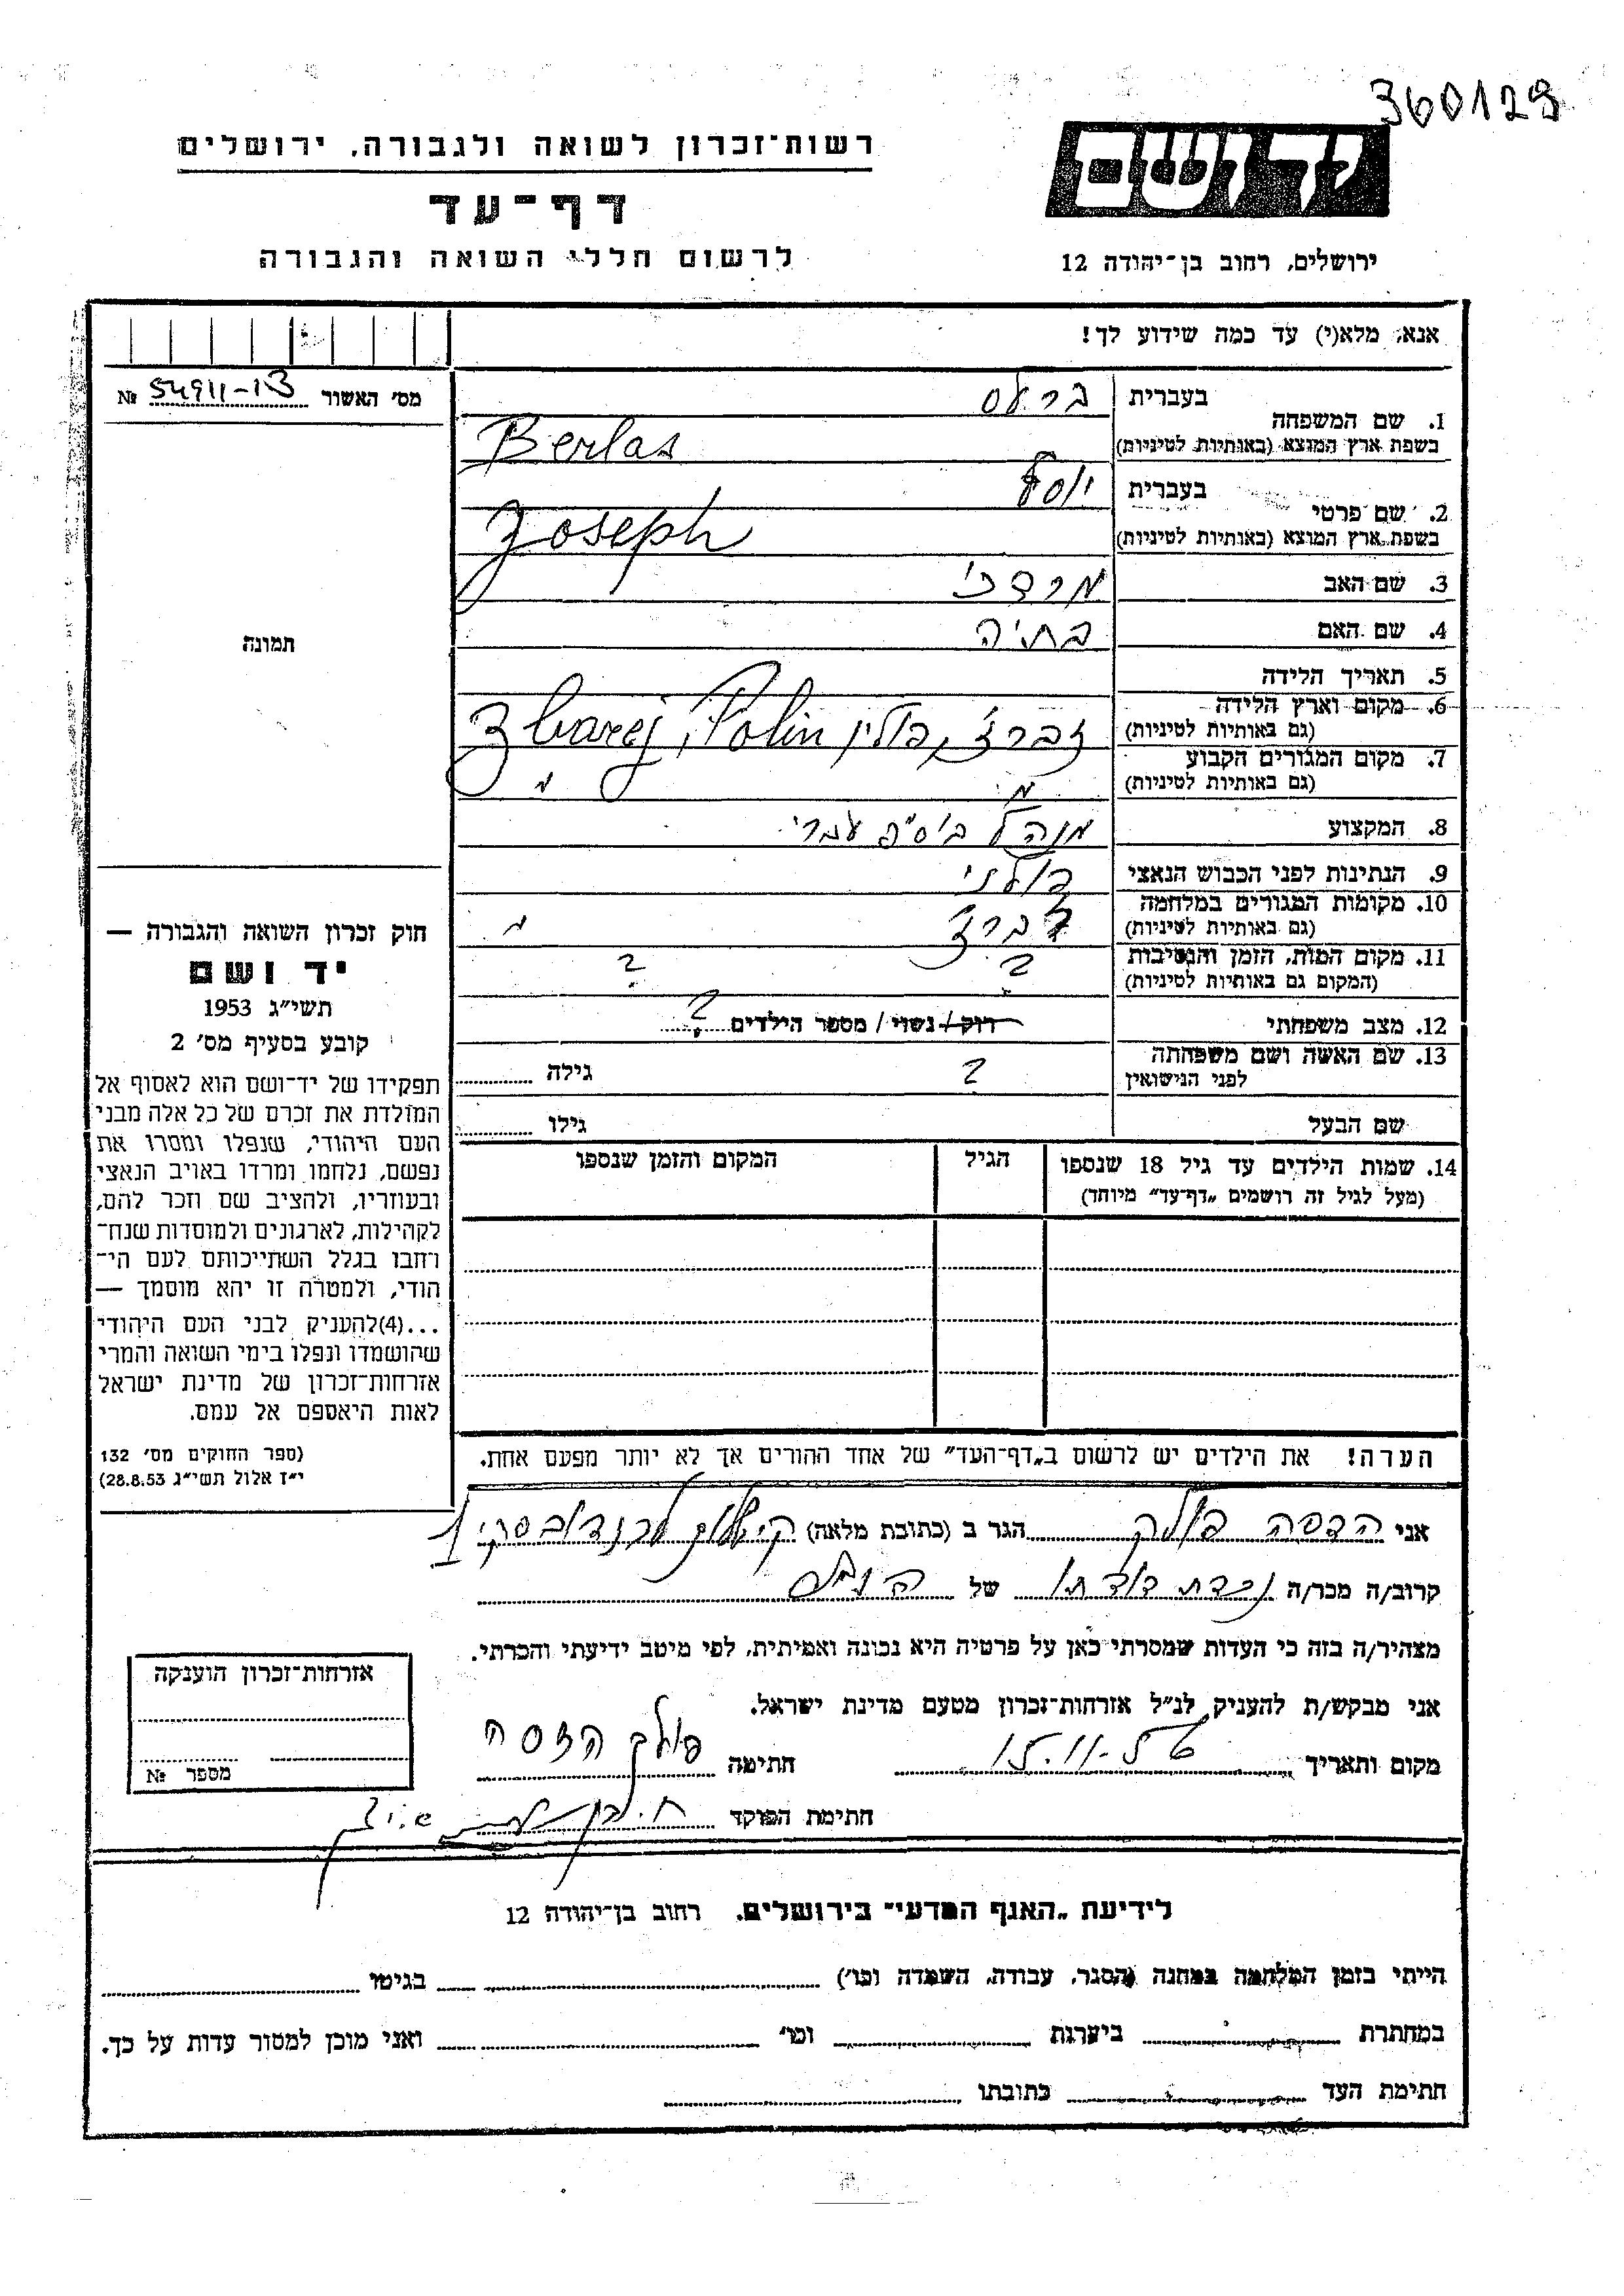 360129
רשות־זכרון לשואה ולגבורה, ירושלים
יד ושם
דף־עד
לרשום חללי השואה והגבורה
ירושלים, רחוב בן־יהודה 12
אנא, מלא(י) עד כמה שידוע לך!
מס' האשור № 54911-13
1. שם המשפחה
בעברית ברלס
בשפת ארץ המוצא (באותיות לטיניות) Berlas
2. שם פרטי
בעברית יוסף
בשפת ארץ המוצא (באותיות לטיניות) Joseph
3. שם האב מרדכי
4. שם האם בתיה
תמונה
5. תאריך הלידה
6. מקום וארץ הלידה
(גם באותיות לטיניות) זברז', פולין Zbarej, Polin
7. מקום המגורים הקבוע
(גם באותיות לטיניות) " "
8. המקצוע מנהל בי"ס עברי
9. הנתינות לפני הכבוש הנאצי פולני
10. מקומות המגורים במלחמה
(גם באותיות לטיניות) זברז' "
11. מקום המות, הזמן והנסיבות
(המקום גם באותיות לטיניות) ? ?
12. מצב משפחתי רוק / נשוי / מספר הילדים ?
13. שם האשה ושם משפחתה
לפני הנישואין ? גילה
שם הבעל גילו
14. שמות הילדים עד גיל 18 שנספו הגיל המקום והזמן שנספו
(מעל לגיל זה רושמים "דף־עד" מיוחד)
חוק זכרון השואה והגבורה —
יד ושם
תשי"ג 1953
קובע בסעיף מס' 2
תפקידו של יד־ושם הוא לאסוף אל
המולדת את זכרם של כל אלה מבני
העם היהודי, שנפלו ומסרו את
נפשם, נלחמו ומרדו באויב הנאצי
ובעוזריו, ולהציב שם וזכר להם,
לקהילות, לארגונים ולמוסדות שנח־
רבו בגלל השתייכותם לעם הי־
הודי, ולמטרה זו יהא מוסמך —
...(4)להעניק לבני העם היהודי
שהושמדו ונפלו בימי השואה והמרי
אזרחות־זכרון של מדינת ישראל
לאות היאספם אל עמם.
(ספר החוקים מס' 132
י"ז אלול תשי"ג 28.8.53)
הערה! את הילדים יש לרשום ב"דף־העד" של אחד ההורים אך לא יותר מפעם אחת.
אני הדסה פולק הגר ב (כתובת מלאה)
קרוב/ה מכר/ה נכדת דודתו של
מצהיר/ה בזה כי העדות שמסרתי כאן על פרטיה היא נכונה ואמיתית, לפי מיטב ידיעתי והכרתי.
אני מבקש/ת להעניק לנ"ל אזרחות־זכרון מטעם מדינת ישראל.
מקום ותאריך חתימה פולק הדסה
חתימת הפוקד
אזרחות־זכרון הוענקה
מספר №
לידיעת "האגף המדעי" בירושלים, רחוב בן־יהודה 12
הייתי בזמן המלחמה במחנה (הסגר, עבודה, השמדה וכו') בגיטו
במחתרת ביערות וכו' ואני מוכן למסור עדות על כך.
חתימת העד כתובתו